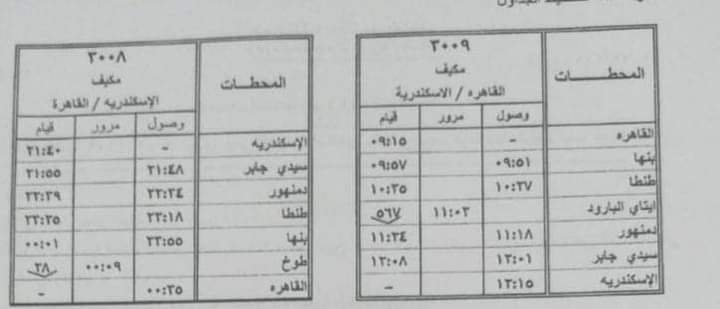 الجداول
المحطات
٣٠٠٩
مكيف
القاهره / الاسكندرية
وصول مرور قيام
القاهره - ٠٩:١٥
بنها ٠٩:٥١ ٠٩:٥٧
طنطا ١٠:٢٧ ١٠:٣٥
ايتاي البارود ١١:٠٣ ٥٦٧
دمنهور ١١:١٨ ١١:٢٤
سيدي جابر ١٢:٠١ ١٢:٠٨
الإسكندريه ١٢:١٥ -
المحطات
٣٠٠٨
مكيف
الإسكندريه / القاهرة
وصول مرور قيام
الإسكندريه - ٢١:٤٠
سيدي جابر ٢١:٤٨ ٢١:٥٥
دمنهور ٢٢:٣٤ ٢٢:٣٩
طنطا ٢٣:١٨ ٢٣:٢٥
بنها ٢٣:٥٥ ٠٠:٠١
طوخ ٠٠:٠٩ ٣٨
القاهره ٠٠:٣٥ -